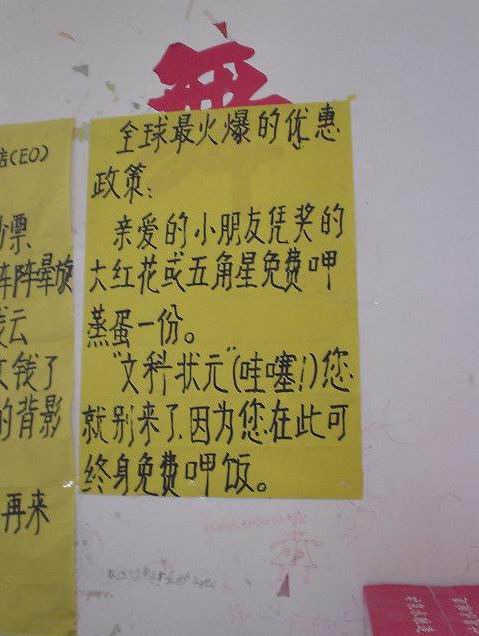 全球最火爆的优惠
政策：
亲爱的小朋友凭奖的
大红花或五角星免费呷
蒸蛋一份。
"文科状元"(哇噻!)您
就别来了.因为您在此可
终身免费呷饭。
店(CEO)
钞票
阵阵晕旋
钱了
的背影
再来